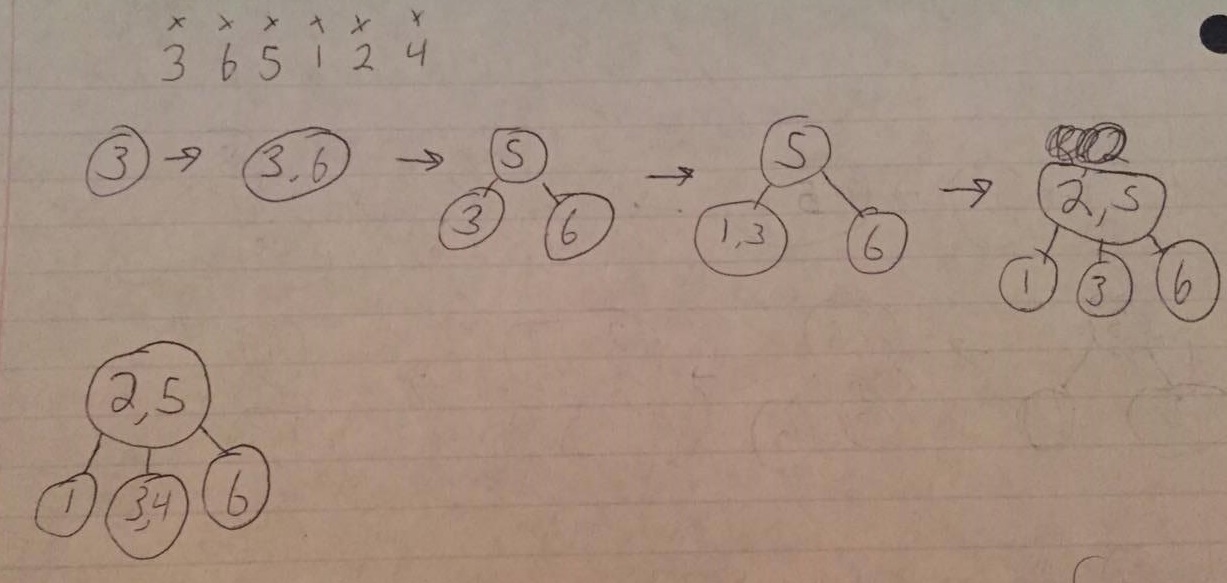 x x x x x x
3 6 5 1 2 4
3 → 3,6 → 5 → 5 → 2,5
3 6 1,3 6 1 3 6
2,5
1 3,4 6